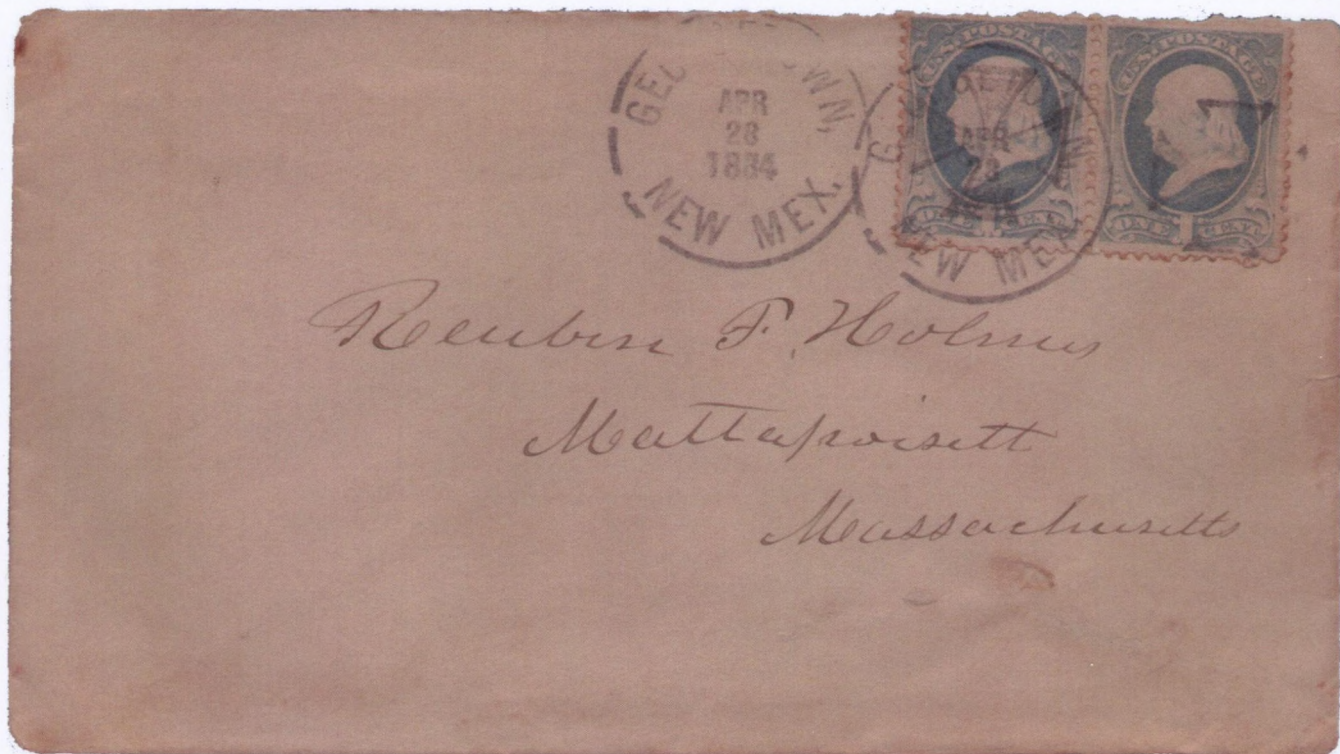 GEORGETOWN,
APR
28
1884
NEW MEX.
GEORGETOWN,
APR
28
NEW MEX.
U.S. POSTAGE
ONE 1 CENT
U.S. POSTAGE
ONE 1 CENT
Reuben F. Holmes
Mattapoisett
Massachusetts